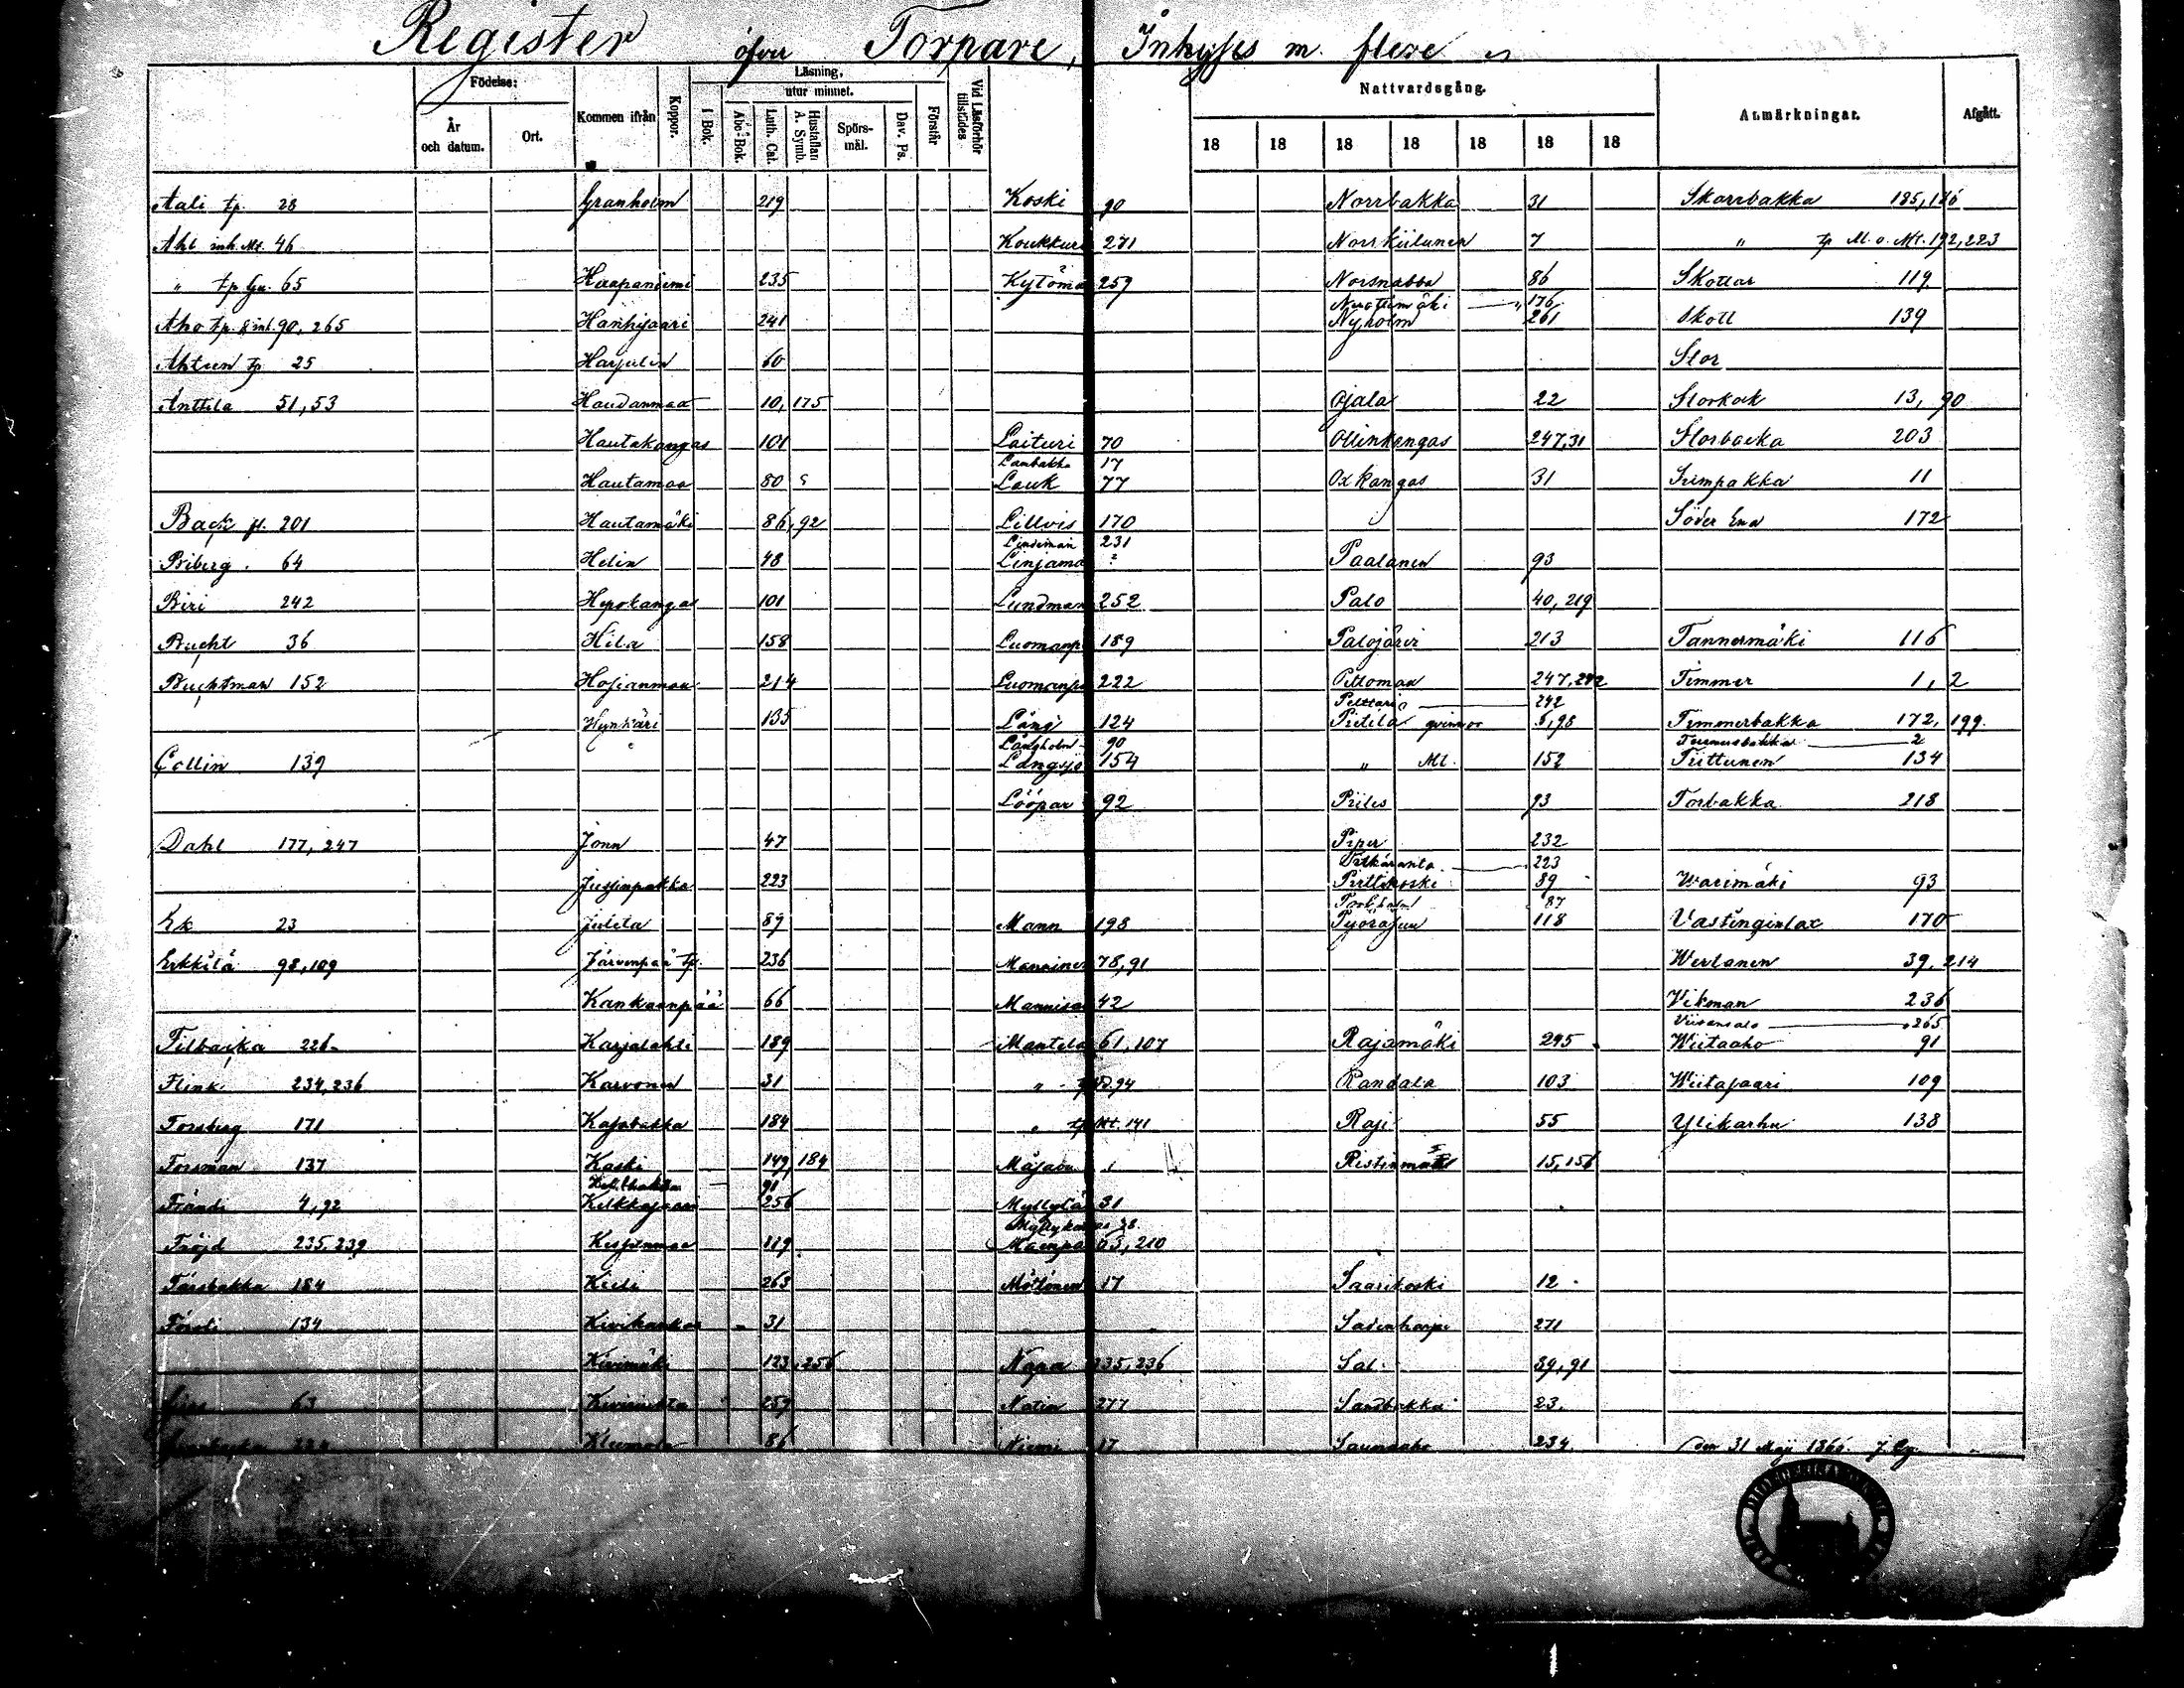 Register öfver Torpare, Inhyses m. flere
Födelse:
År och datum.
Ort.
Kommen ifrån
Koppor.
Läsning.
I Bok.
utur minnet.
Abc-Bok.
Luth. Cat.
Hustaflan A. Symb.
Spörsmål.
Dav. Ps.
Förstår
Vid Läsförhör tillstädes
Nattvardsgång.
18 18 18 18 18 18 18
Anmärkningar.
Afgått.
Aali tp. 28
Ahl inh. Ml. 46
" tp. Gu. 65
Aho tp. & inh. 90, 265
Ahteen tp. 25
Anttila 51, 53
Back 201
Biberg 64
Biri 242
Bucht 36
Buchtman 152
Collin 139
Dahl 177, 247
Ek 23
Erkkilä 98, 109
Filbacka 226
Flink 234, 236
Forsberg 171
Forsman 137
Frändi 4, 92
Fröjd 235, 239
Färsbakka 184
Försti 134
63
Granholm 219
Haapaniemi 235
Hanhisaari 241
Harjulin 60
Haudanmaa 10, 175
Hautakangas 101
Hautamaa 80
Hautamäki 86, 92
Helin 48
Hepokangas 101
Hila 158
Hosianmaa 214
Hynkäri 135
Jonn 47
Jussinpakka 223
Julita 89
Järvenpää tp. 236
Kankaanpää 66
Karjalahti 189
Karvonen 31
Kasabakka 184
Kaski 149, 184
91
Kelkkasaari 256
Kespinmaa 119
Kieli 263
Kivikankas 31
Kivimäki 123, 256
Kivirinta 259
Kleemola 86
Koski 90
Koukkuri 271
Kytömaa 259
Laituri 70
Lanbakka 17
Lauk 77
Lillvis 170
Lindeman 231
Linjama ?
Lundman 252
Luomanp 189
Luomanpä 222
Lång 124
Långholm 90
Långsjö 154
Lööpar 92
Mann 198
Manninen 78, 91
Mannisa 42
Mantela 61, 107
" 94
" tp. Ml. 141
Myllylä 31
Mäenpää 63, 210
Möttönen 17
Napa 235, 236
Natin 277
Niemi 17
Norrbakka 31
Norrkiilunen 7
Norsnabba 86
Nuottimäki " 176
Nyholm 261
Ojala 22
Ollinkangas 247, 31
Oxkangas 31
Paalanen 93
Palo 40, 219
Palojärvi 213
Peltomaa 247, 242
Pelttari 242
Pietilä qvinnor 5, 98
" Ml. 152
Piiles 93
Piper 232
Pitkäranta 223
Pirttikoski 89
87
Pyöräsuu 118
Rajamäki 295
Randala 103
Rasi 55
Ristinmaa 15, 156
Saarikoski 12
Sadinharju 271
Sal 89, 91
Sandbakka 23
Saunaaho 234
Skarrbakka 185, 186
" tp. Ml. o. Ml. 192, 223
Skottar 119
Skott 139
Stor
Storkock 13, 90
Storbacka 203
Sumpakka 11
Söder Ena 172
Tannermäki 116
Timmer 1, 2
Timmerbakka 172, 199
Timmerbakka 2
Tiittunen 134
Torbakka 218
Warimäki 93
Vastinginlax 170
Wertanen 39, 214
Vikman 236
Viisansalo 265
Wiitaaho 91
Wiitasaari 109
Ylikarhu 138
den 31 Maji 1866.